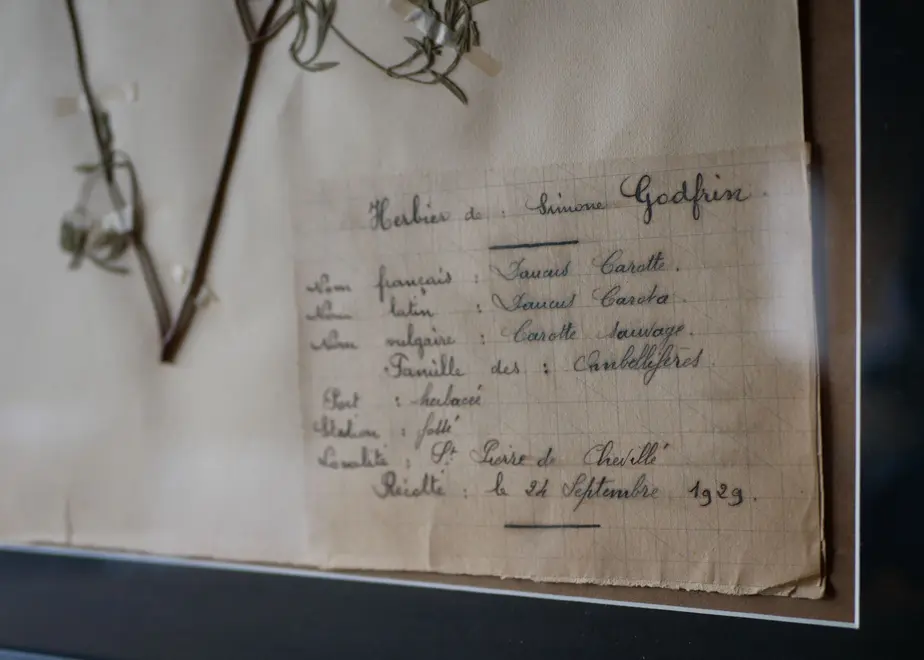 Herbier de : Simone Godfrin.
Nom français : Daucus Carotte.
Nom latin : Daucus Carota.
Nom vulgaire : Carotte sauvage.
Famille des : Ombellifères.
Port : herbacé
Station : fossé
Localité : St Pierre de Chevillé
Récolté : le 24 Septembre 1929.